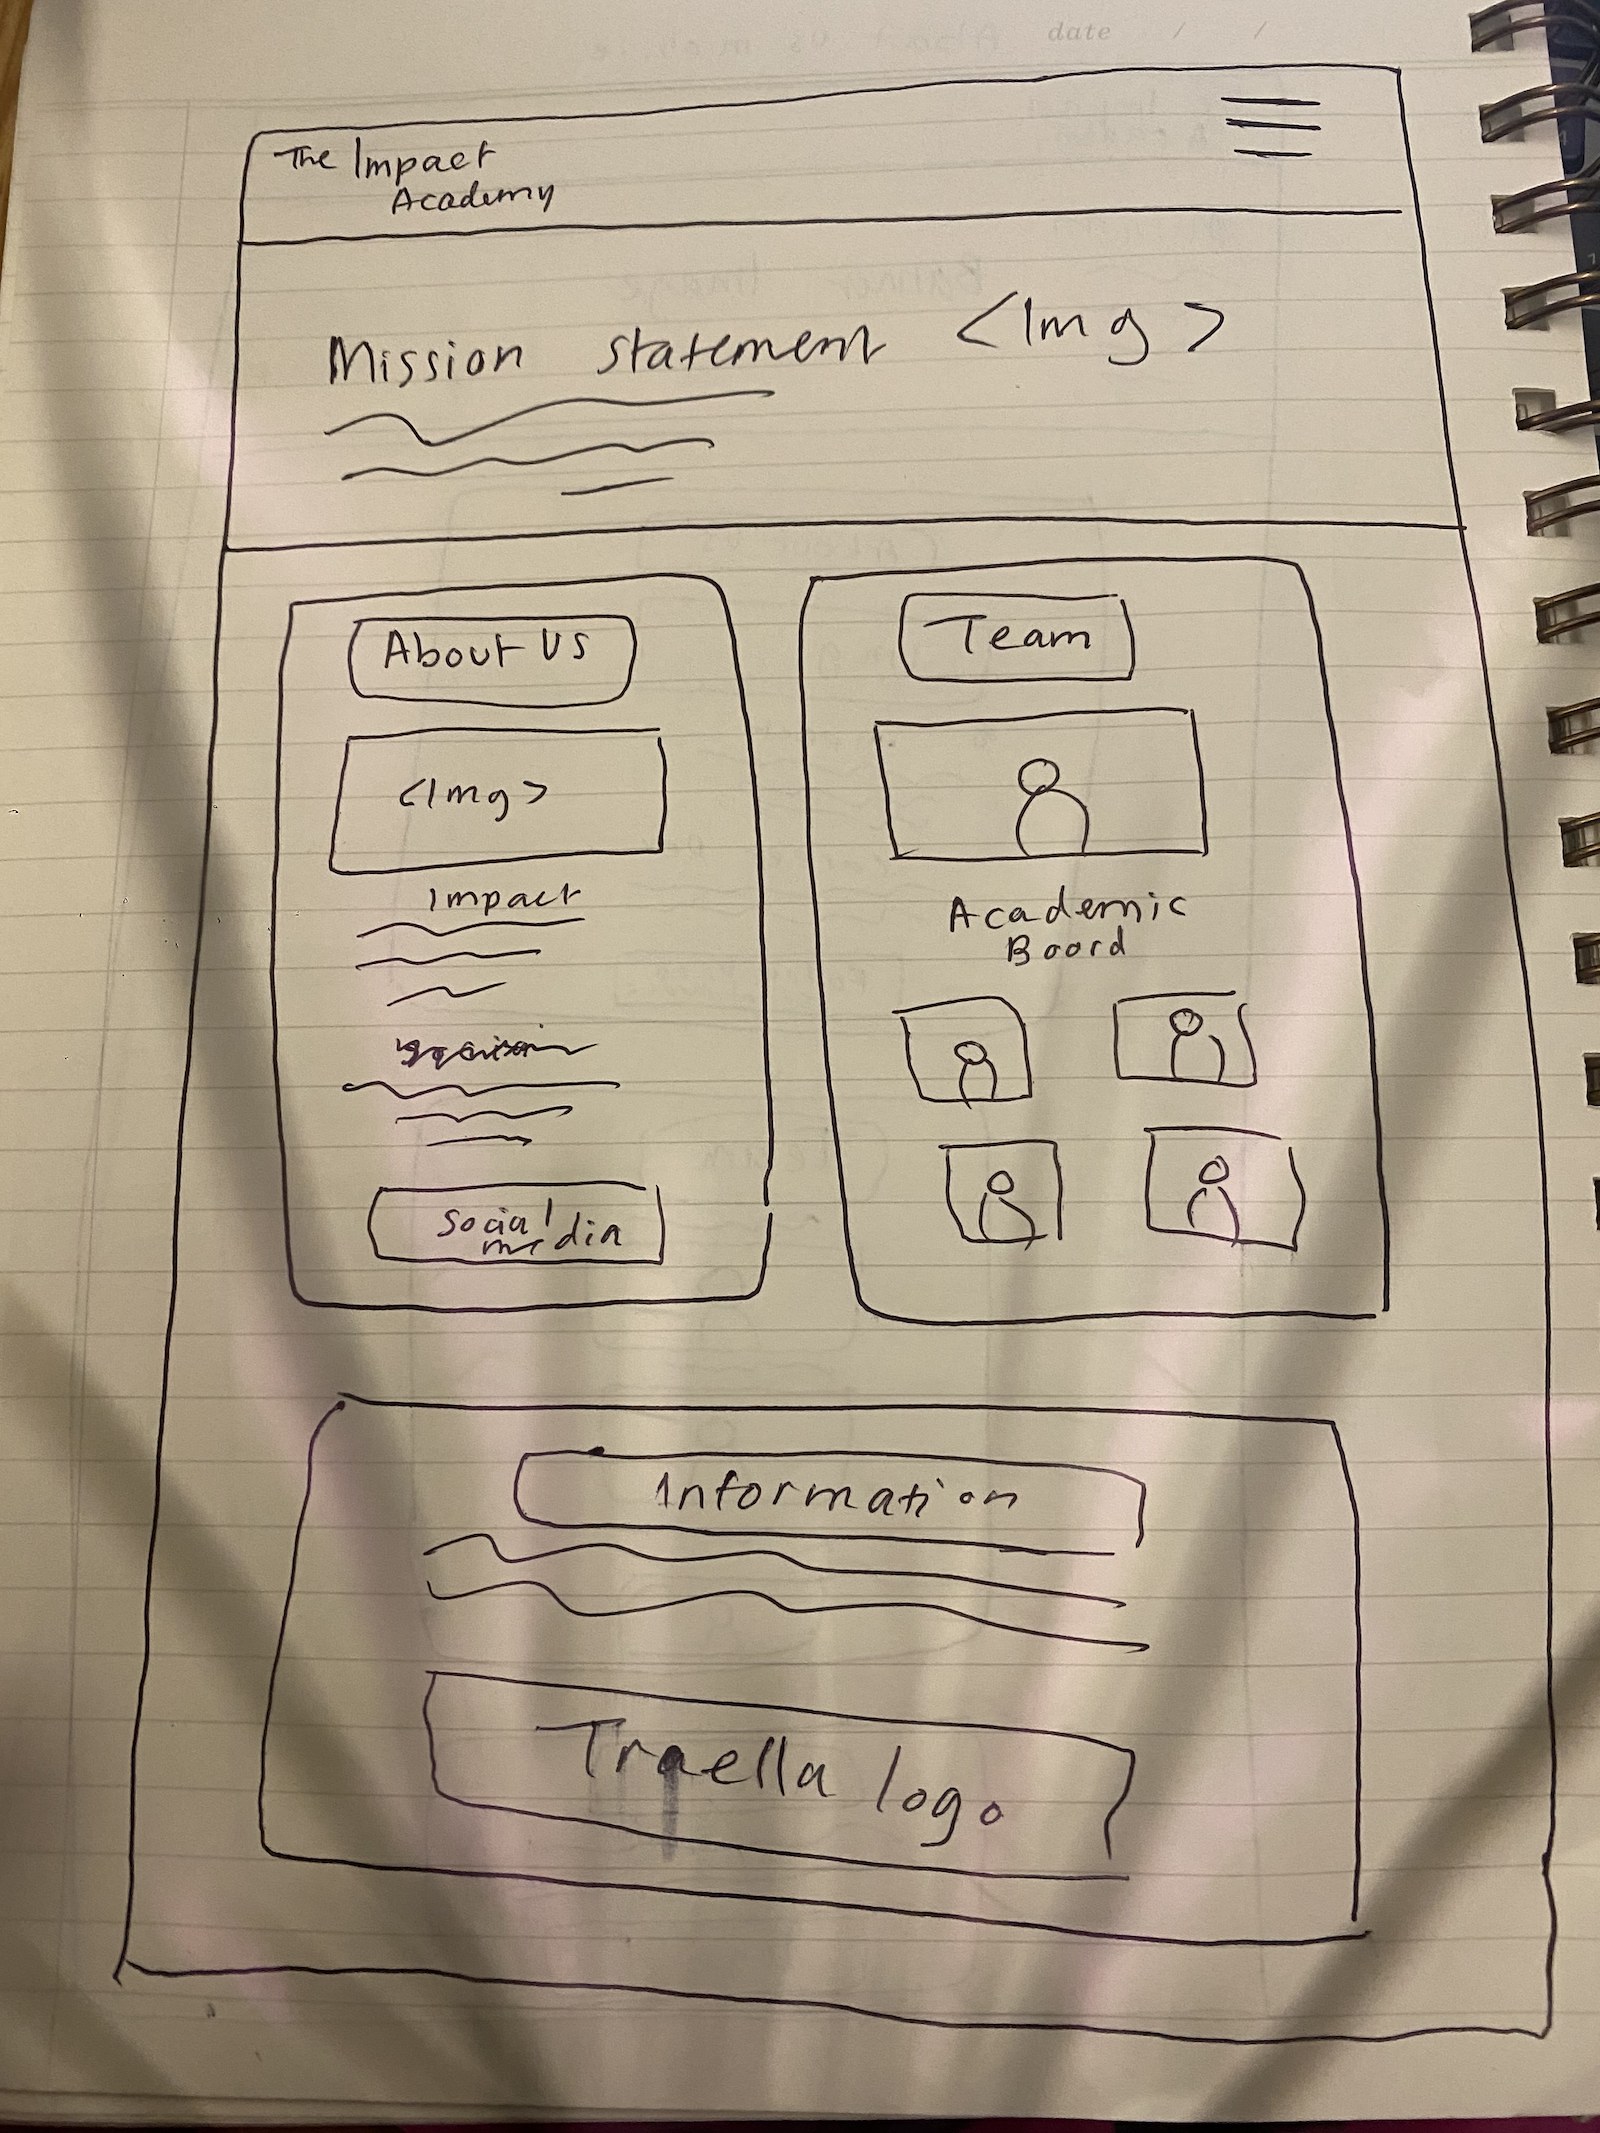 date / /
The Impact
Academy
Mission statement <Img>
About Us
<Img>
Impact
Social
media
Team
Academic
Board
Information
Traella logo